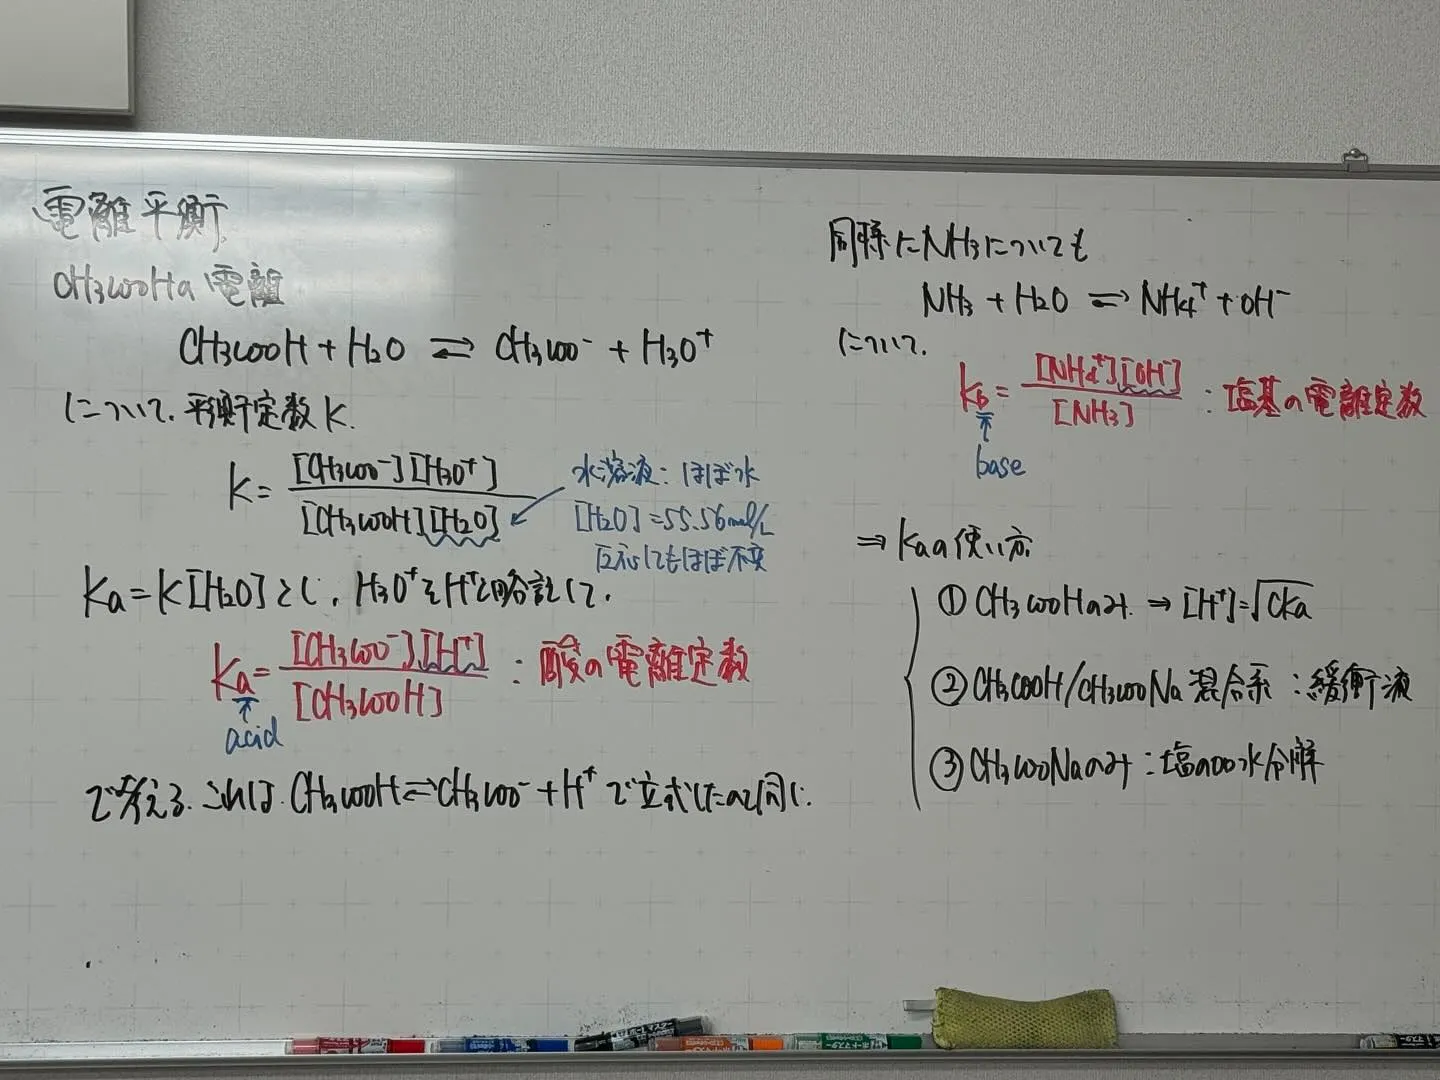 電離平衡
CH₃COOHの電離
CH₃COOH + H₂O ⇄ CH₃COO⁻ + H₃O⁺
について、平衡定数K.
K = [CH₃COO⁻][H₃O⁺] / [CH₃COOH][H₂O]
水溶液：ほぼ水
[H₂O] = 55.56mol/L
反応してもほぼ不変
Ka = K[H₂O]とし、H₃O⁺をH⁺と略記して、
Ka = [CH₃COO⁻][H⁺] / [CH₃COOH] ：酸の電離定数
acid
で考える. これは、CH₃COOH ⇄ CH₃COO⁻ + H⁺ で立式したのと同じ.
同様にNH₃についても
NH₃ + H₂O ⇄ NH₄⁺ + OH⁻
について、
Kb = [NH₄⁺][OH⁻] / [NH₃] ：塩基の電離定数
base
⇒ Kaの使い方
① CH₃COOHのみ. ⇒ [H⁺] = √CKa
② CH₃COOH/CH₃COONa 混合系：緩衝液
③ CH₃COONaのみ：塩の加水分解